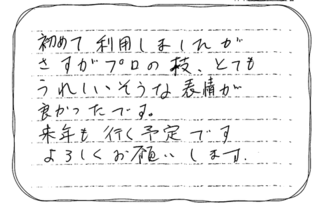 初めて利用しましたが
さすがプロの技、とても
うれしいそうな表情が
良かったです。
来年も行く予定です
よろしくお願いします.